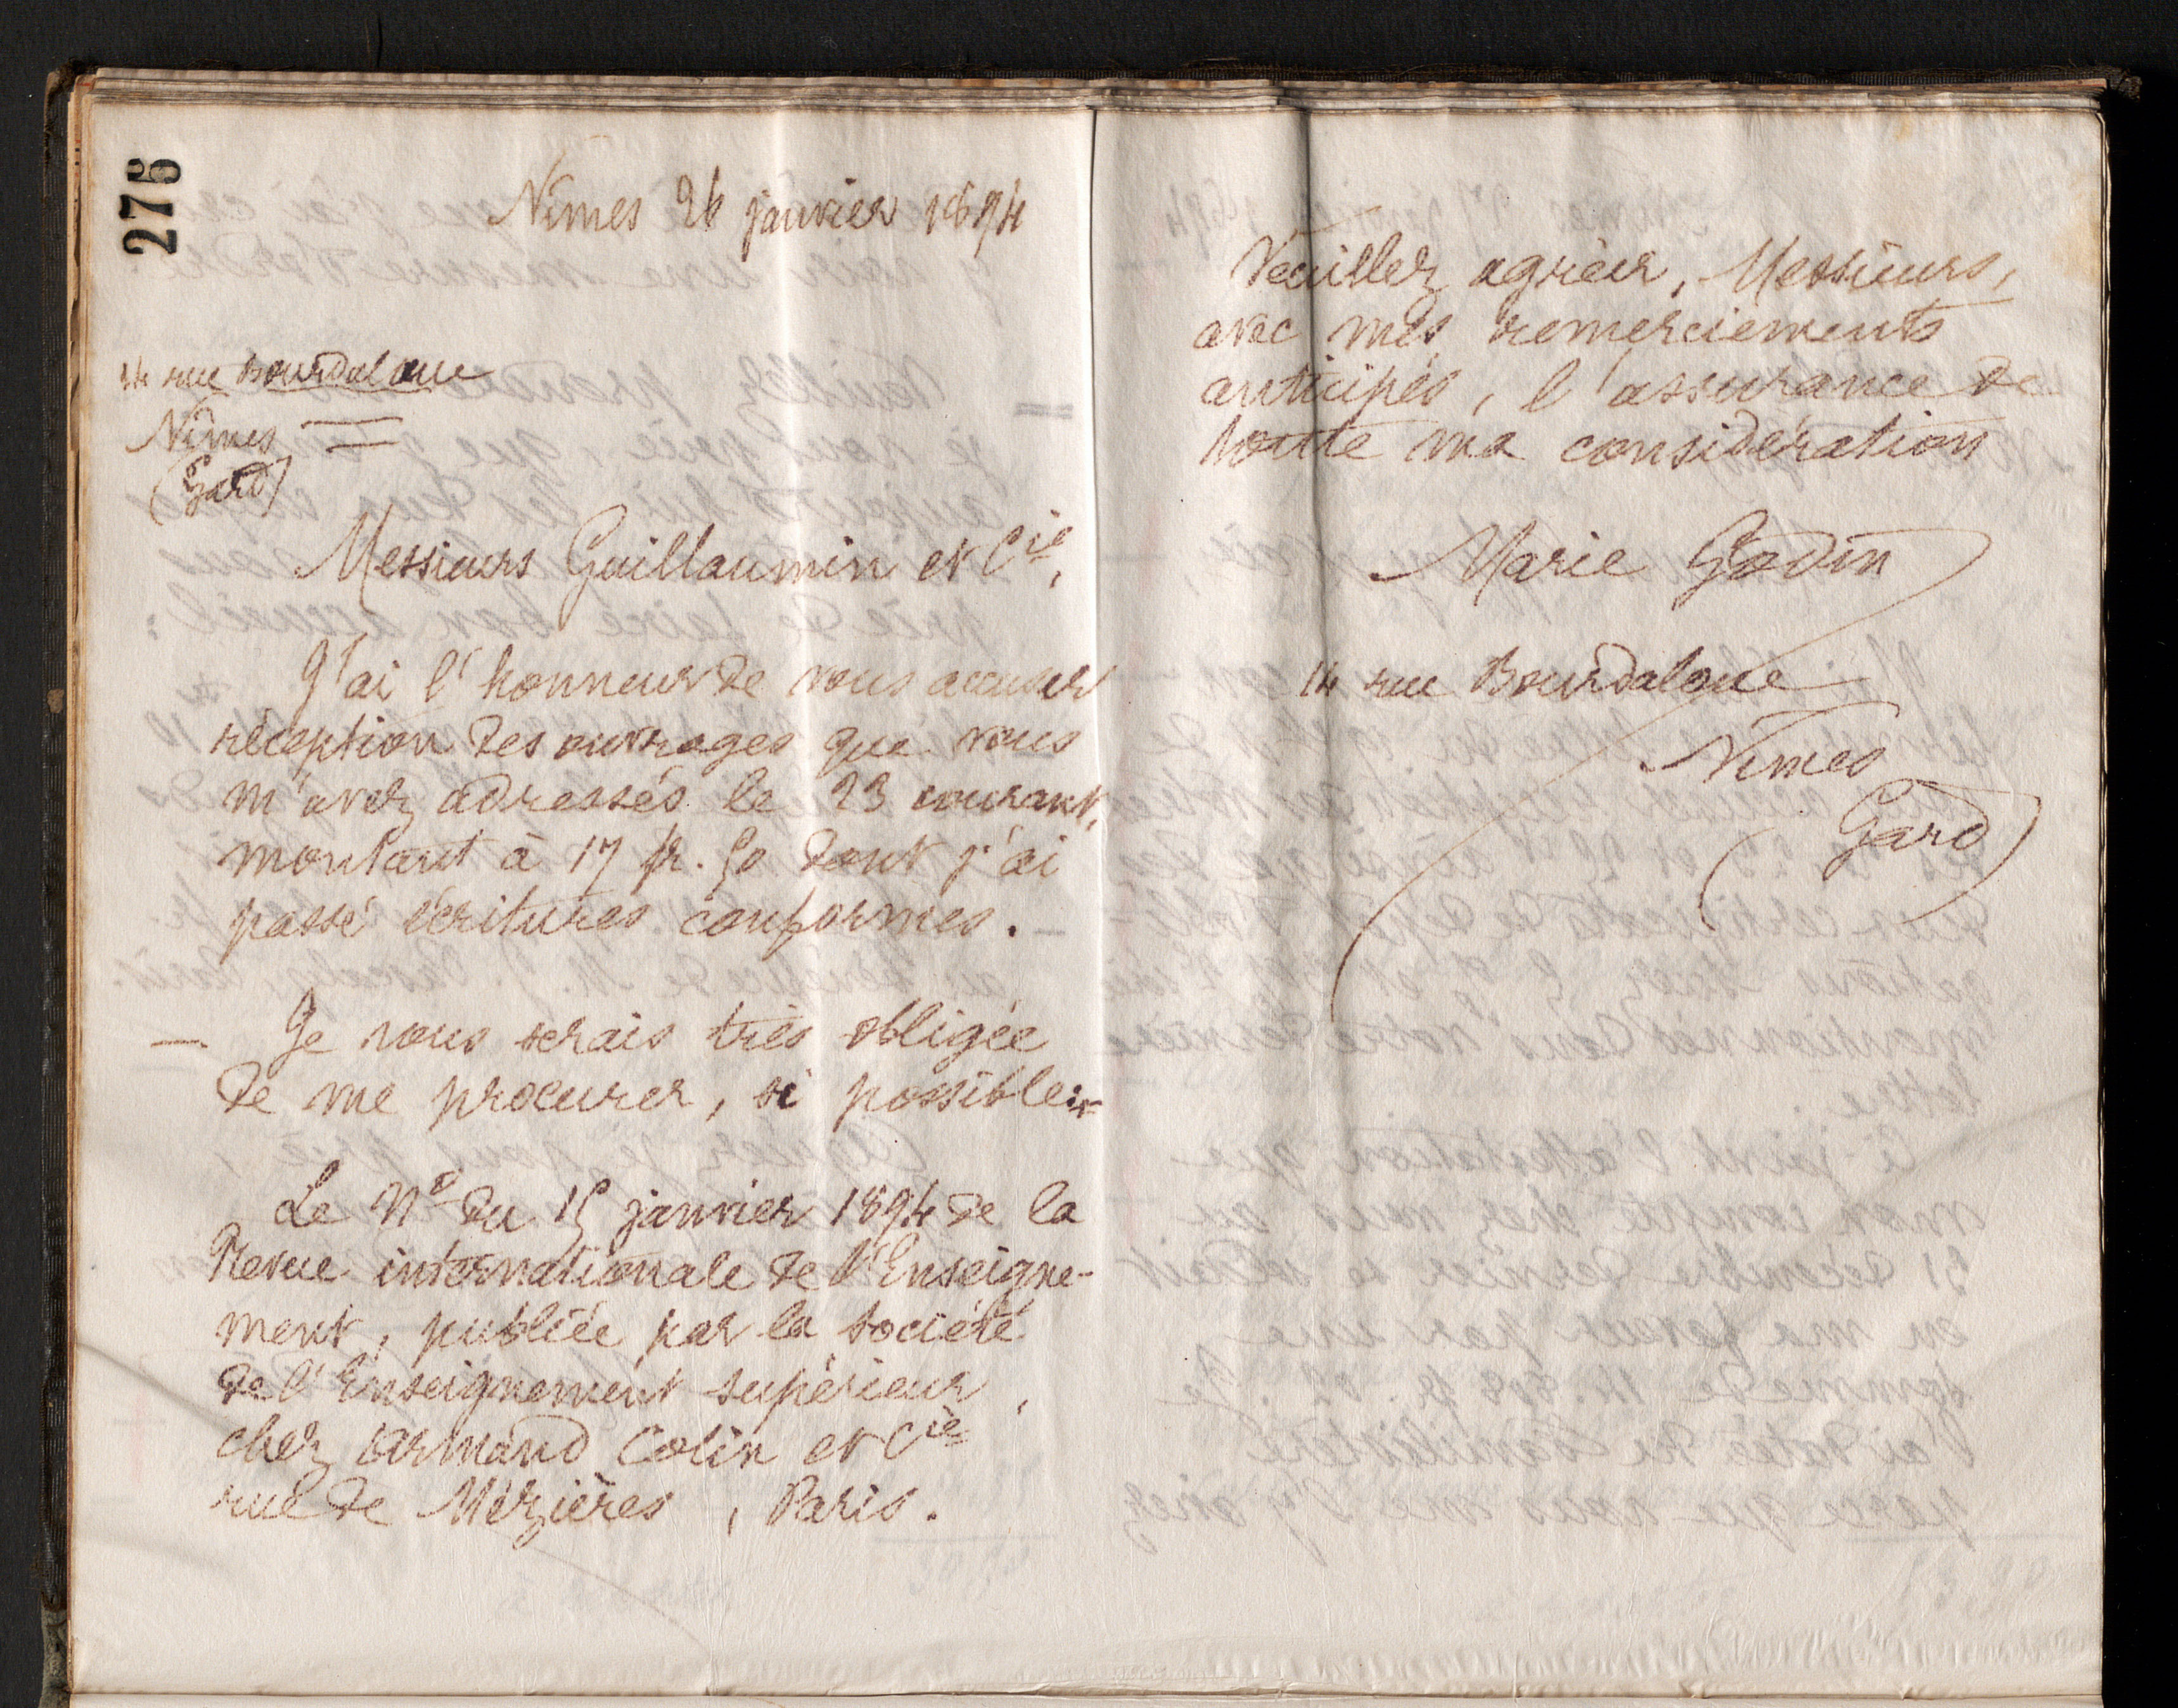 275
Nîmes 26 janvier 1894
14 rue Bourdaloue
Nîmes
(Gard)
Messieurs Guillaumin et Cie,
J'ai l'honneur de vous accuser
réception des ouvrages que vous
m'avez adressés le 23 courant,
montant à 17 fr. 50 dont j'ai
passé écritures conformes.
— Je vous serais très obligée
de me procurer, si possible :
Le No du 15 janvier 1894 de la
Revue internationale de l'Enseigne-
ment, publiée par la Société
de l'Enseignement supérieur,
chez Armand Colin et Cie
rue de Mézières, Paris.
Veuillez agréer, Messieurs,
avec mes remerciements
anticipés, l'assurance de
toute ma considération
Marie Godin
14 rue Bourdaloue
Nîmes
(Gard)